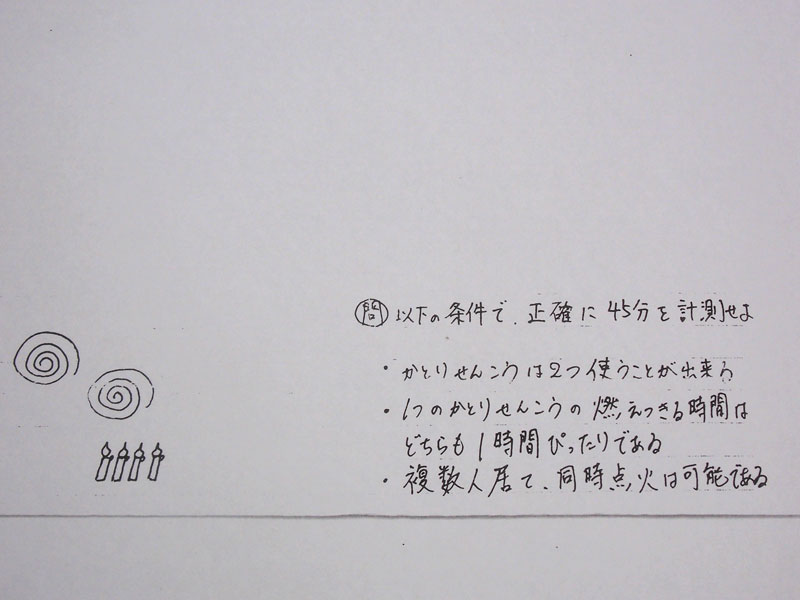 問 以下の条件で、正確に45分を計測せよ
・かとりせんこうは2つ使うことが出来る
・1つのかとりせんこうの燃えつきる時間は
どちらも1時間ぴったりである
・複数人居て、同時点火は可能である